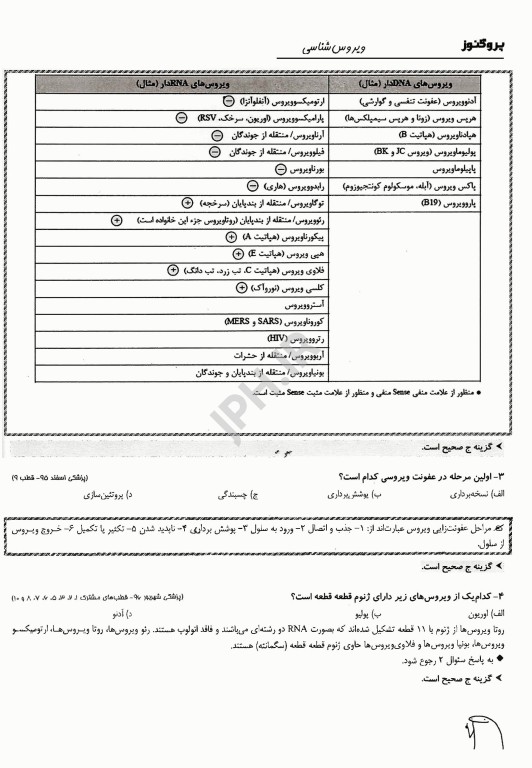 پروگنوز
ویروس شناسی
ویروس‌های DNAدار (مثال) ویروس‌های RNAدار (مثال)
آدنوویروس (عفونت تنفسی و گوارشی) ارتومیکسوویروس (آنفلوآنزا) −
هرپس ویروس (زونا و هرپس سیمپلکس‌ها) پارامیکسوویروس (اوریون، سرخک، RSV) −
هپادناویروس (هپاتیت B) آرناویروس/ منتقله از جوندگان −
پولیوماویروس (ویروس JC و BK) فیلوویروس/ منتقله از جوندگان −
پاپیلوماویروس بورناویروس −
پاکس ویروس (آبله، موسکولوم کونتجیوزوم) رابدوویروس (هاری) −
پاروویروس (B19) توگاویروس/ منتقله از بندپایان (سرخجه) +
رئوویروس/ منتقله از بندپایان (روتاویروس جزء این خانواده است) +
پیکورناویروس (هپاتیت A) +
هپی ویروس (هپاتیت E) +
فلاوی ویروس (هپاتیت C، تب زرد، تب دانگ) +
کلسی ویروس (نوروآک) +
آستروویروس
کوروناویروس (SARS و MERS)
رتروویروس (HIV)
آربوویروس/ منتقله از حشرات
بونیاویروس/ منتقله از بندپایان و جوندگان
● منظور از علامت منفی Sense منفی و منظور از علامت مثبت Sense مثبت است.
JPH.IR
➤ گزینه ج صحیح است.
۳- اولین مرحله در عفونت ویروسی کدام است؟ (پزشکی اسفند ۹۵- قطب ۹)
الف) نسخه‌برداری ب) پوشش‌برداری ج) چسبندگی د) پروتئین‌سازی
مراحل عفونت‌زایی ویروس عبارت‌اند از: ۱- جذب و اتصال ۲- ورود به سلول ۳- پوشش برداری ۴- ناپدید شدن ۵- تکثیر یا تکمیل ۶- خروج ویروس
از سلول.
➤ گزینه ج صحیح است.
۴- کدام‌یک از ویروس‌های زیر دارای ژنوم قطعه قطعه است؟ (پزشکی شهریور ۹۰- قطب‌های مشترک
الف) اوریون ب) پولیو د) آدنو
روتا ویروس‌ها از ژنوم با ۱۱ قطعه تشکیل شده‌اند که بصورت RNA دو رشته‌ای می‌باشند و فاقد انولوپ هستند. رئو ویروس‌ها، روتا ویروس‌ها، ارتومیکسو
ویروس‌ها، بونیا ویروس‌ها و فلاوی‌ویروس‌ها حاوی ژنوم قطعه قطعه (سگمانته) هستند.
◆ به پاسخ سئوال ۲ رجوع شود.
➤ گزینه ج صحیح است.